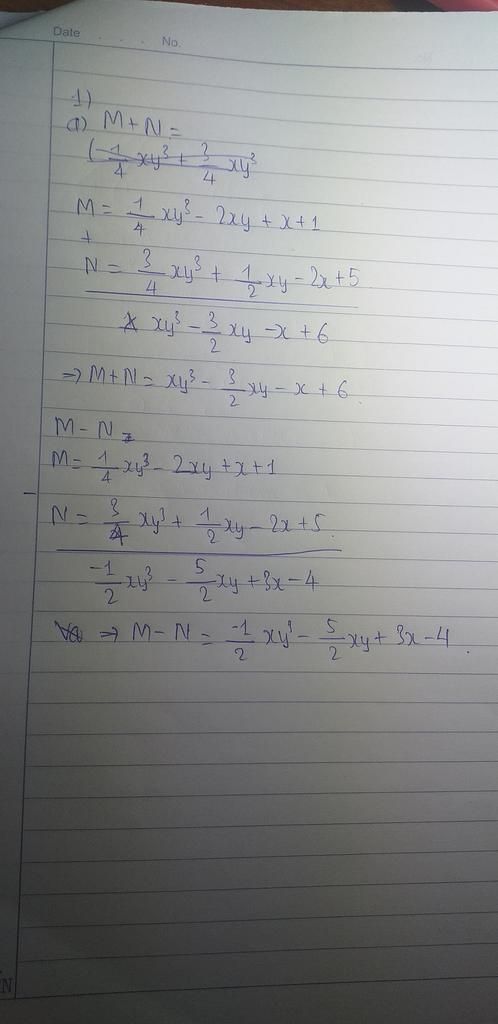 Date . . . No.
1)
a) M+N =
(1/4 xy³ + 3/4 xy³
M = 1/4 xy³ - 2xy + x + 1
+
N = 3/4 xy³ + 1/2 xy - 2x + 5
xy³ - 3/2 xy - x + 6
=> M+N = xy³ - 3/2 xy - x + 6.
M - N =
M = 1/4 xy³ - 2xy + x + 1
-
N = 3/4 xy³ + 1/2 xy - 2x + 5.
-1/2 xy³ - 5/2 xy + 3x - 4
=> M - N = -1/2 xy³ - 5/2 xy + 3x - 4.
N